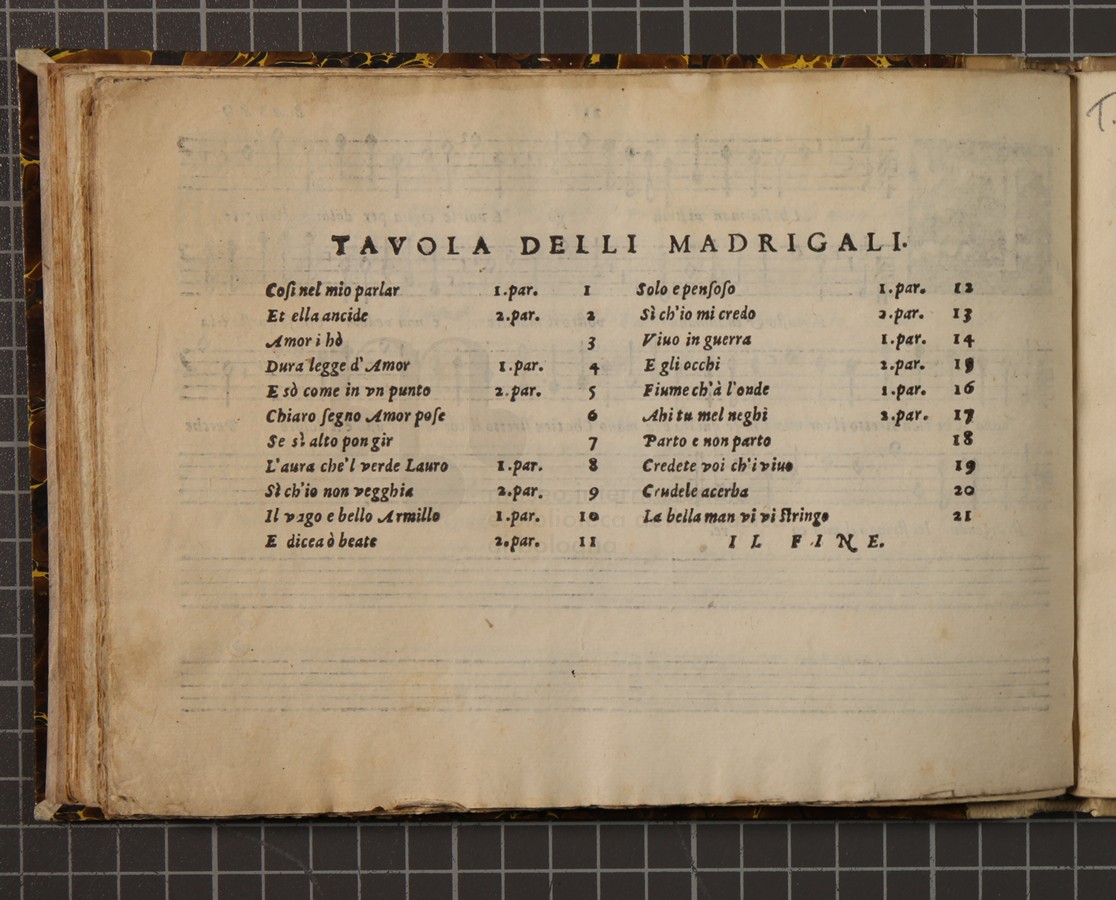 TAVOLA DELLI MADRIGALI.
Cosi nel mio parlar 1.par. 1
Et ella ancide 2.par. 2
Amor i hò 3
Dura legge d'Amor 1.par. 4
E sò come in vn punto 2.par. 5
Chiaro segno Amor pose 6
Se sì alto pon gir 7
L'aura che'l verde Lauro 1.par. 8
Sì ch'io non vegghia 2.par. 9
Il vago e bello Armillo 1.par. 10
E dicea ò beate 2.par. 11
Solo e pensoso 1.par. 12
Sì ch'io mi credo 2.par. 13
Viuo in guerra 1.par. 14
E gli occhi 2.par. 15
Fiume ch'à l'onde 1.par. 16
Ahi tu mel neghi 2.par. 17
Parto e non parto 18
Credete voi ch'i viuo 19
Crudele acerba 20
La bella man vi vi stringo 21
IL FINE.